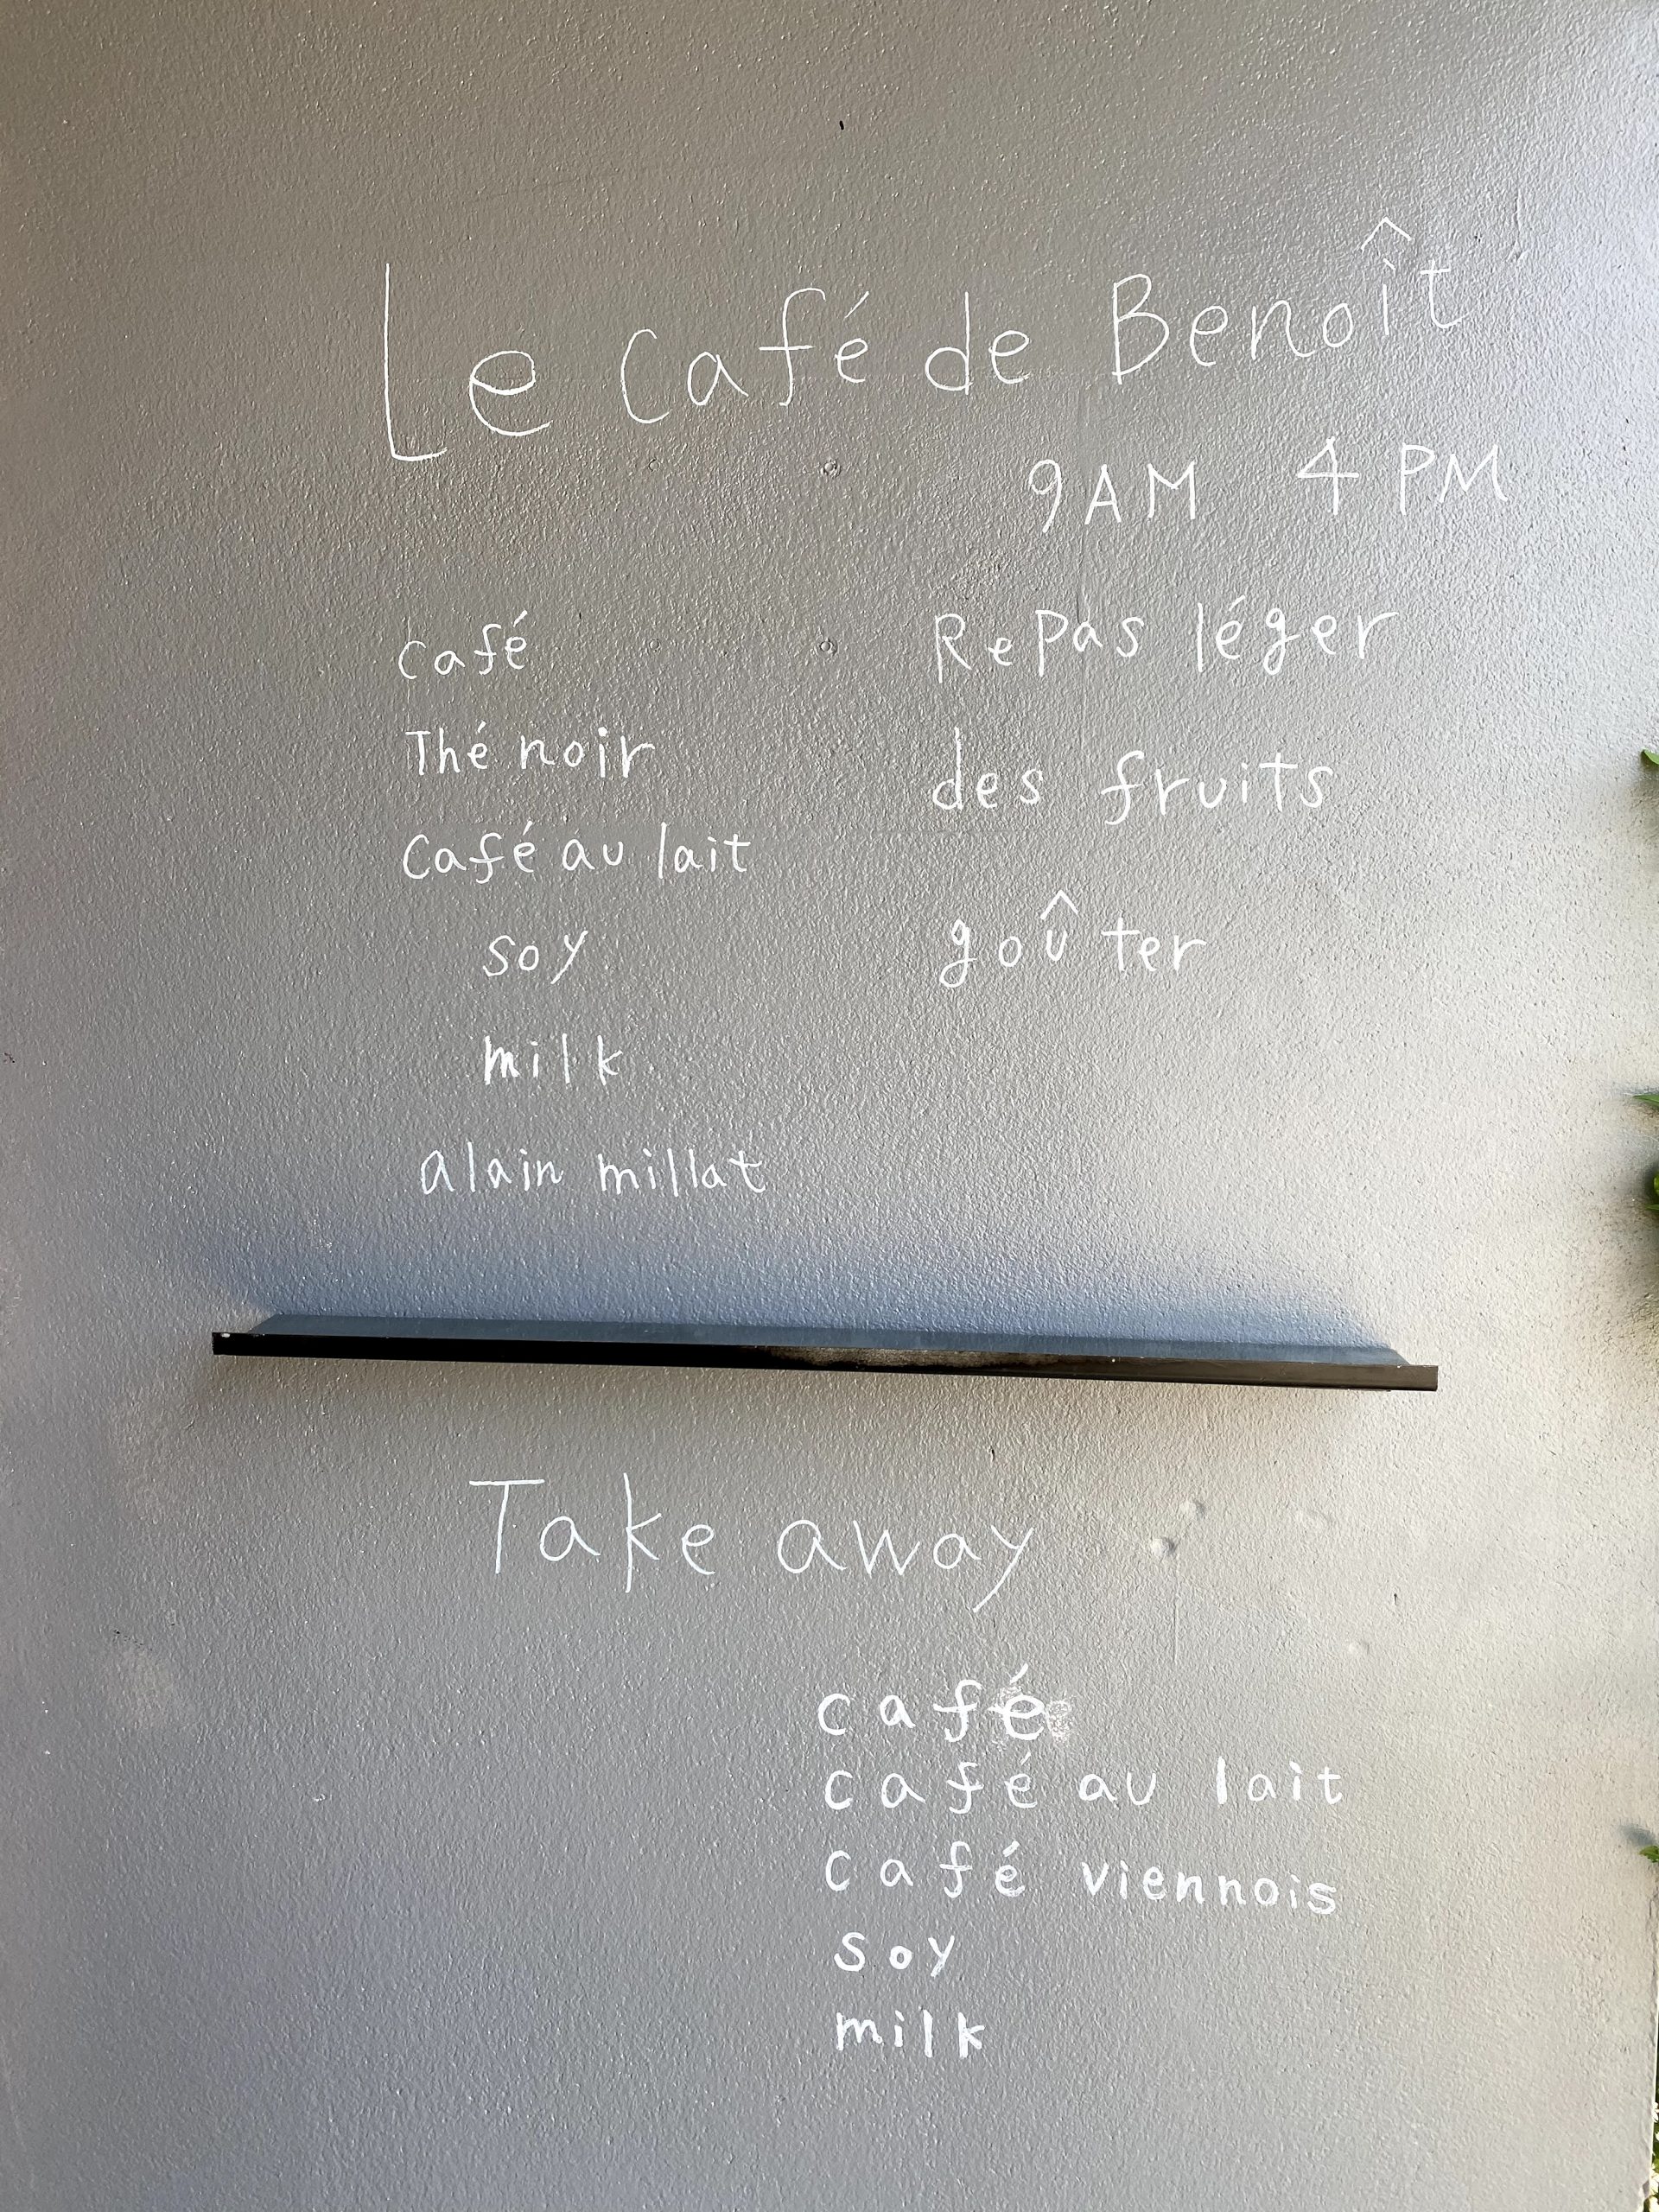 Le café de Benoît
9AM 4 PM
café
Thé noir
Café au lait
soy
milk
alain millat
Repas léger
des fruits
goûter
Take away
café
café au lait
café viennois
soy
milk